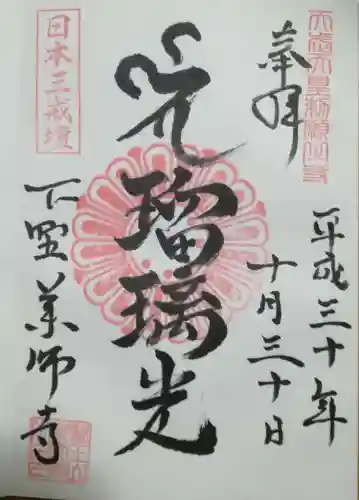 天武天皇勅願之寺
奉拝
平成三十年
十月三十日
瑠璃光
日本三戒壇
下野薬師寺